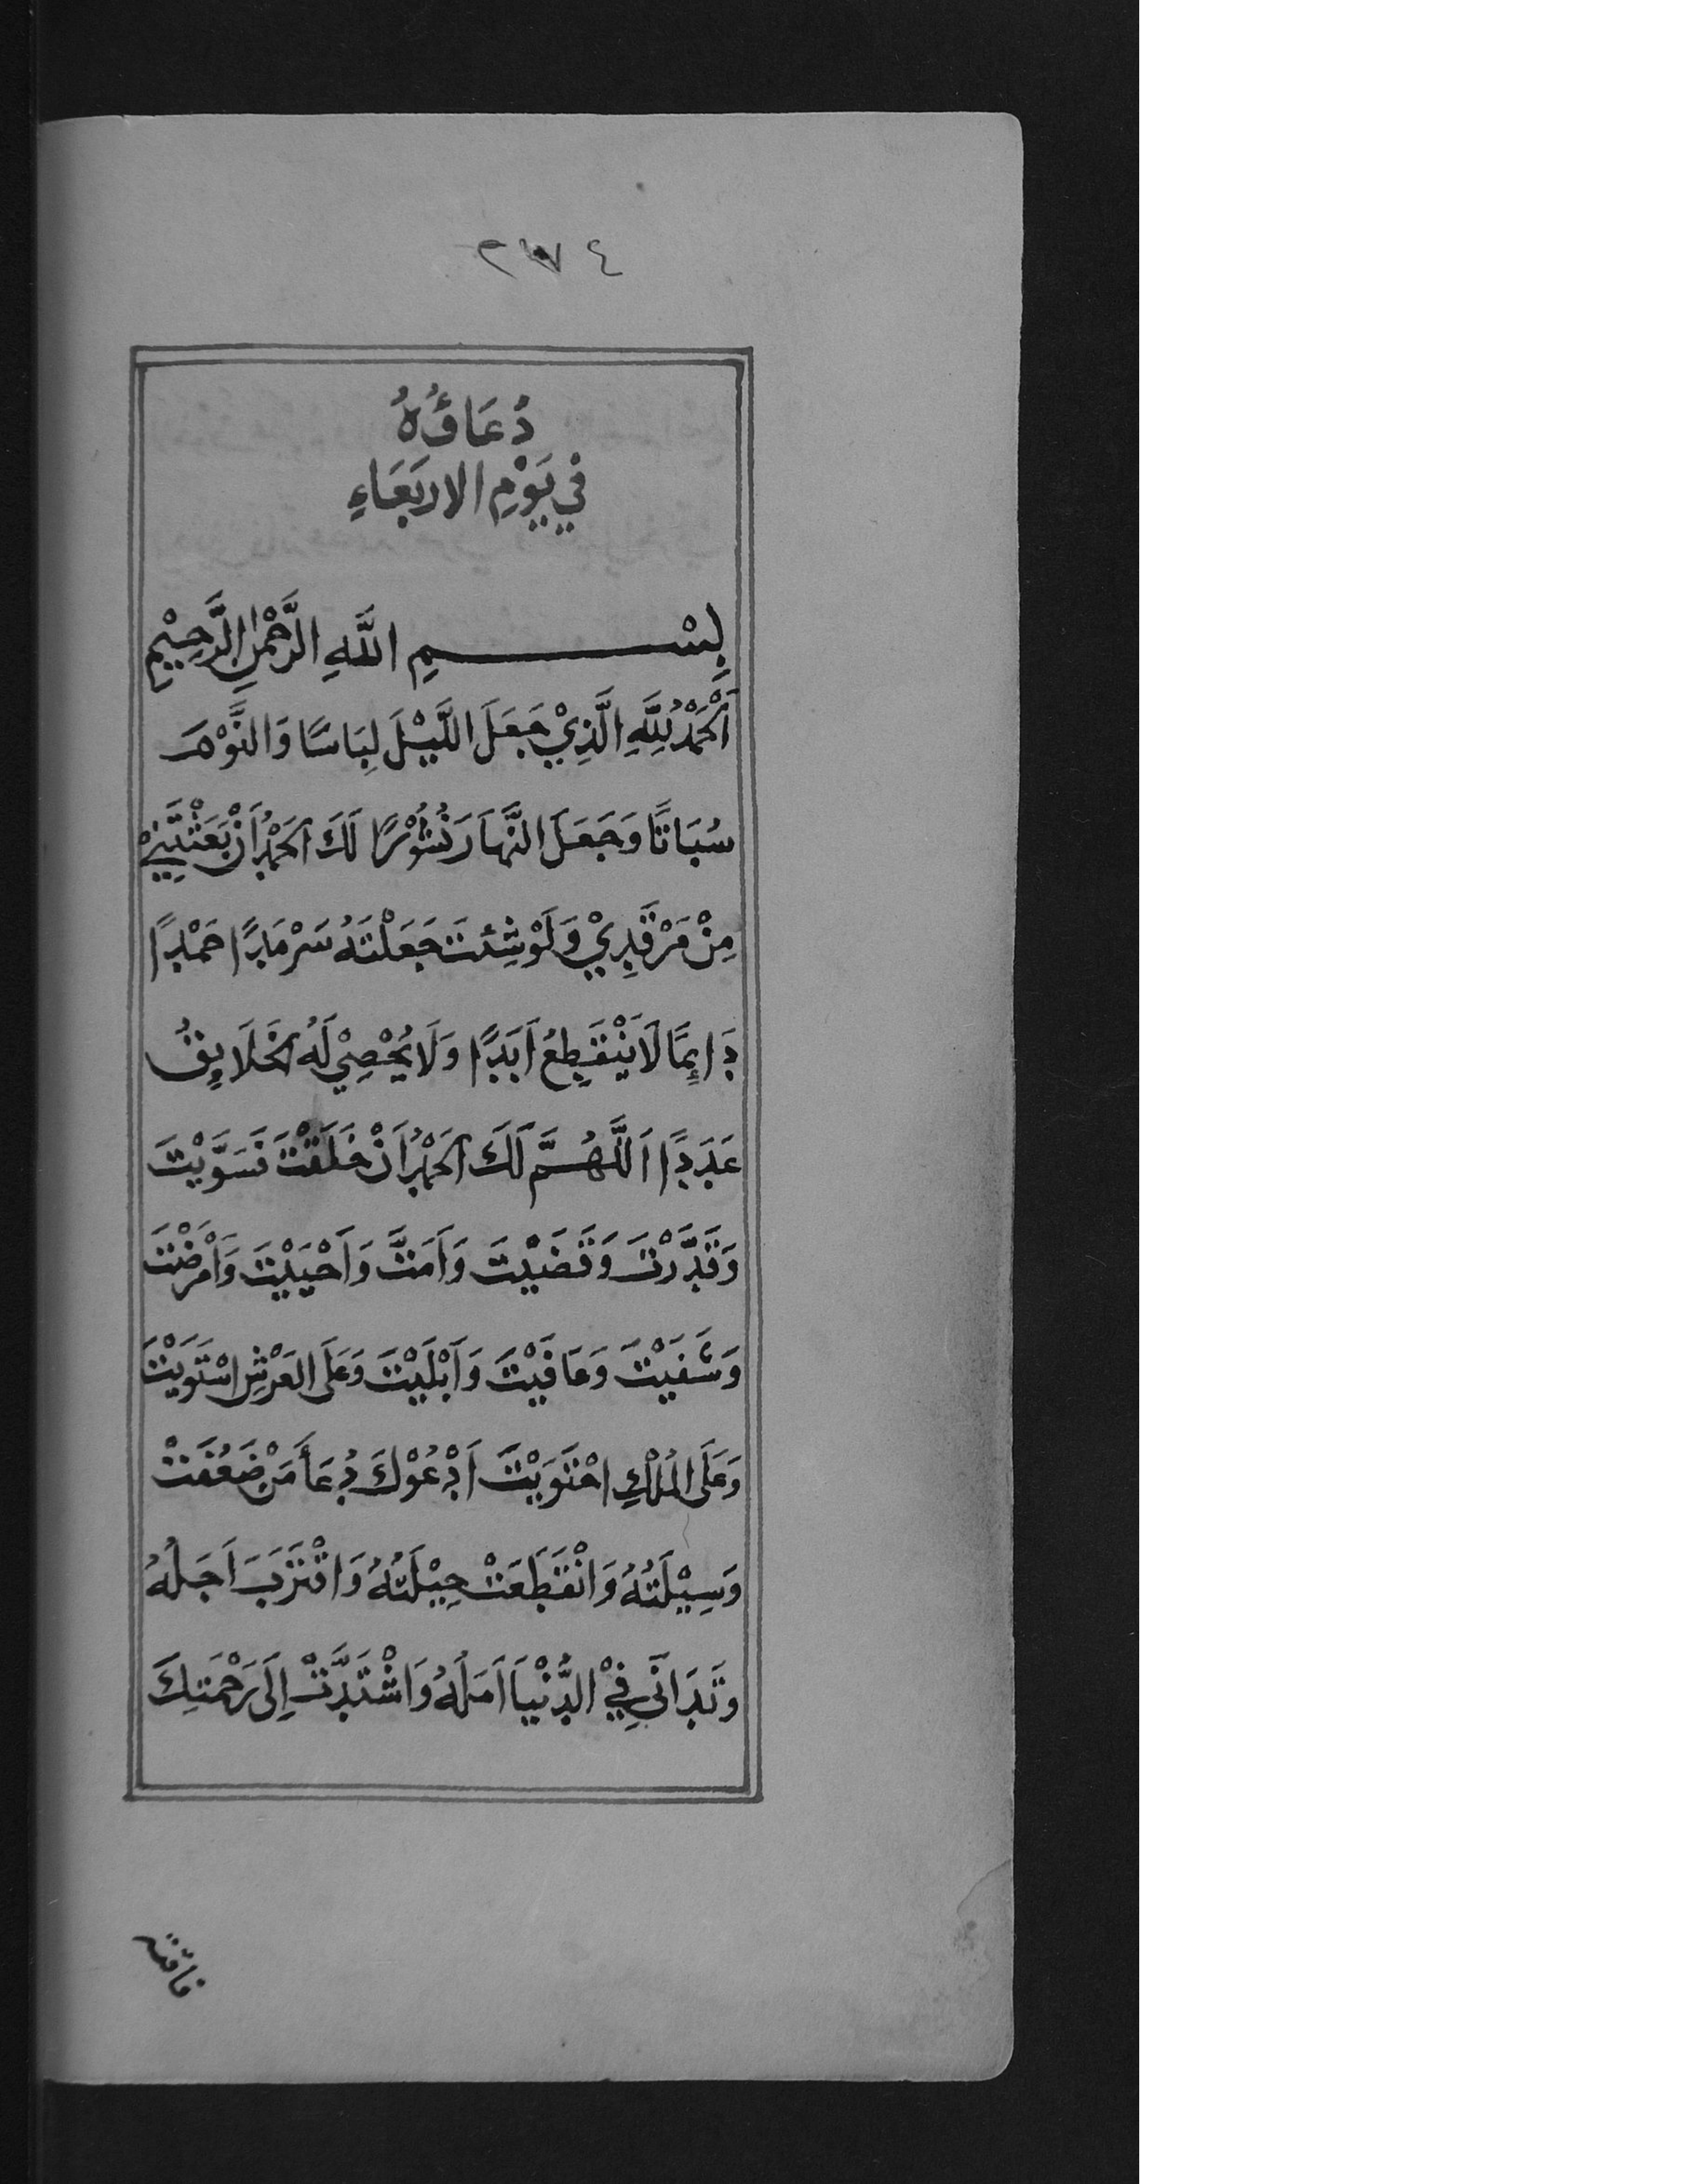 ٢٧٤
دُعَاؤُهُ
فِي يَوْمِ الاربَعَاءِ
بِسْمِ اللَّهِ الرَّحْمٰنِ الرَّحِيْمِ
اَلْحَمْدُ لِلَّهِ الَّذِيْ جَعَلَ اللَّيْلَ لِبَاسًا وَالنَّوْمَ
سُبَاتًا وَجَعَلَ النَّهَارَ نُشُوْرًا لَكَ الحَمْدُ اَنْ بَعَثْتَنِيْ
مِنْ مَرْقَدِيْ وَلَوْ شِئتَ جَعَلْتَهُ سَرْمَدًا حَمْدًا
دَائِمًا لَا يَنْقَطِعُ اَبَدًا وَلَا يُحْصِيْ لَهُ الخَلَايِقُ
عَدَدًا اَللَّهُمَّ لَكَ الحَمْدُ اَنْ خَلَقْتَ فَسَوَّيْتَ
وَقَدَّرْتَ وَقَضَيْتَ وَاَمَتَّ وَاَحْيَيْتَ وَاَمْرَضْتَ
وَشَفَيْتَ وَعَافَيْتَ وَاَبْلَيْتَ وَعَلَى العَرْشِ اسْتَوَيْتَ
وَعَلَى المُلْكِ احْتَوَيْتَ اَدْعُوْكَ دُعَأَ مَنْ ضَعُفَتْ
وَسِيْلَتُهُ وَانْقَطَعَتْ حِيْلَتُهُ وَاقْتَرَبَ اَجَلُهُ
وَتَدَانَى فِيْ الدُّنْيَا اَمَلُهُ وَاشْتَدَّتْ اِلَى رَحْمَتِكَ
فاقته